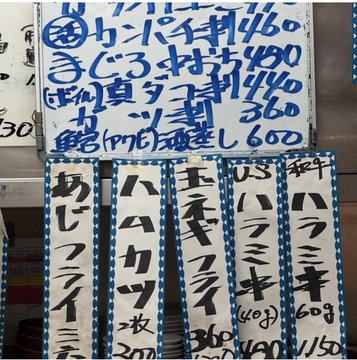 活カンパチ刺 460
まぐろ中おち 490
(ボイル)真ダコ刺 440
カツ刺 360
(アワビ)酒蒸し 600
あじフライ
ハムカツ
2枚
300
玉ネギフライ
360
USハラミ串
(40g)
490
和牛
ハラミ串
60g
1150